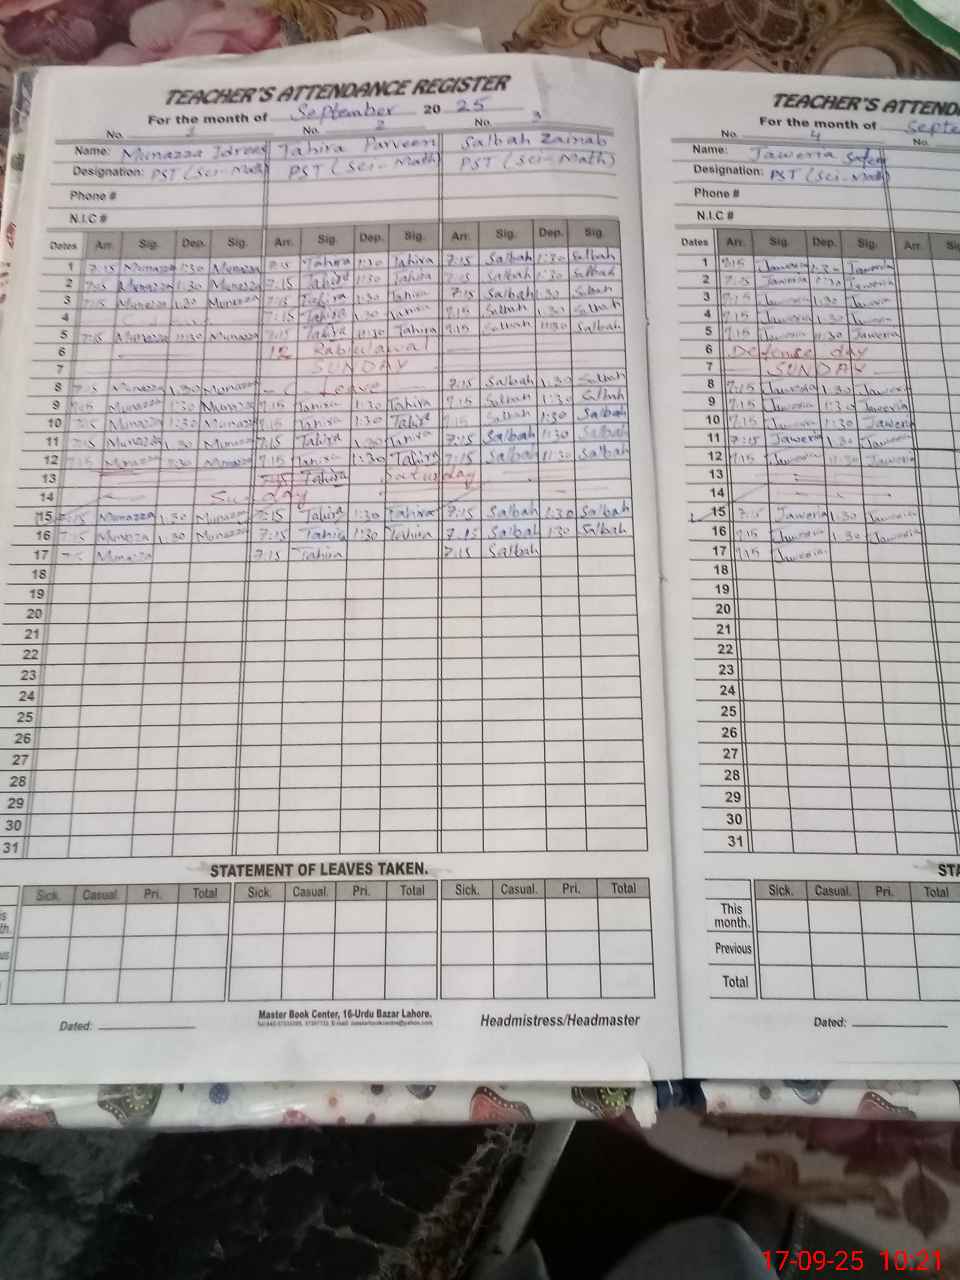 TEACHER'S ATTENDANCE REGISTER
For the month of September 2025
No. 1 No. 2 No. 3
Name: Munazza Idrees Tahira Parveen Salbah Zainab
Designation: PST (Sci-Math) PST (Sci-Math) PST (Sci-Math)
Phone #
N.I.C #
Dates Arr. Sig. Dep. Sig. Arr. Sig. Dep. Sig. Arr. Sig. Dep. Sig.
1 7:15 Munazza 1:30 Munazza 7:15 Tahira 1:30 Tahira 7:15 Salbah 1:30 Salbah
2 7:15 Munazza 1:30 Munazza 7:15 Tahira 1:30 Tahira 7:15 Salbah 1:30 Salbah
3 7:15 Munazza 1:30 Munazza 7:15 Tahira 1:30 Tahira 7:15 Salbah 1:30 Salbah
4 7:15 Tahira 1:30 Tahira 7:15 Salbah 1:30 Salbah
5 7:15 Munazza 11:30 Munazza 7:15 Tahira 11:30 Tahira 7:15 Salbah 11:30 Salbah
6 12 Rabiulawal
7 SUNDAY
8 7:15 Munazza 1:30 Munazza Leave 7:15 Salbah 1:30 Salbah
9 7:15 Munazza 1:30 Munazza 7:15 Tahira 1:30 Tahira 7:15 Salbah 1:30 Salbah
10 7:15 Munazza 1:30 Munazza 7:15 Tahira 1:30 Tahira 7:15 Salbah 1:30 Salbah
11 7:15 Munazza 1:30 Munazza 7:15 Tahira 1:30 Tahira 7:15 Salbah 1:30 Salbah
12 7:15 Munazza 11:30 Munazza 7:15 Tahira 1:30 Tahira 7:15 Salbah 11:30 Salbah
13 Tahira Saturday
14 Sunday
15 7:15 Munazza 1:30 Munazza 7:15 Tahira 1:30 Tahira 7:15 Salbah 1:30 Salbah
16 7:15 Munazza 1:30 Munazza 7:15 Tahira 1:30 Tahira 7:15 Salbah 1:30 Salbah
17 7:15 Munazza 7:15 Tahira 7:15 Salbah
18
19
20
21
22
23
24
25
26
27
28
29
30
31
STATEMENT OF LEAVES TAKEN.
Sick. Casual. Pri. Total Sick. Casual. Pri. Total Sick. Casual. Pri. Total
Dated:
Master Book Center, 16-Urdu Bazar Lahore.
Headmistress/Headmaster
TEACHER'S ATTEND
For the month of Septe
No. 4 No.
Name: Jaweria
Designation: PST (Sci-Math)
Phone #
N.I.C #
Dates Arr. Sig. Dep. Sig. Arr.
1 7:15 Jaweria 1:30 Jaweria
2 7:15 Jaweria 1:30 Jaweria
3 7:15 Jaweria 1:30 Jaweria
4 7:15 Jaweria 1:30 Jaweria
5 7:15 Jaweria 11:30 Jaweria
6 Defense day
7 SUNDAY
8 7:15 Jaweria 1:30 Jaweria
9 7:15 Jaweria 1:30 Jaweria
10 7:15 Jaweria 1:30 Jaweria
11 7:15 Jaweria 1:30 Jaweria
12 7:15 Jaweria 11:30 Jaweria
13
14
15 7:15 Jaweria 1:30 Jaweria
16 7:15 Jaweria 1:30 Jaweria
17 7:15 Jaweria
18
19
20
21
22
23
24
25
26
27
28
29
30
31
STA
Sick. Casual. Pri. Total
This month.
Previous
Total
Dated:
17-09-25 10:21